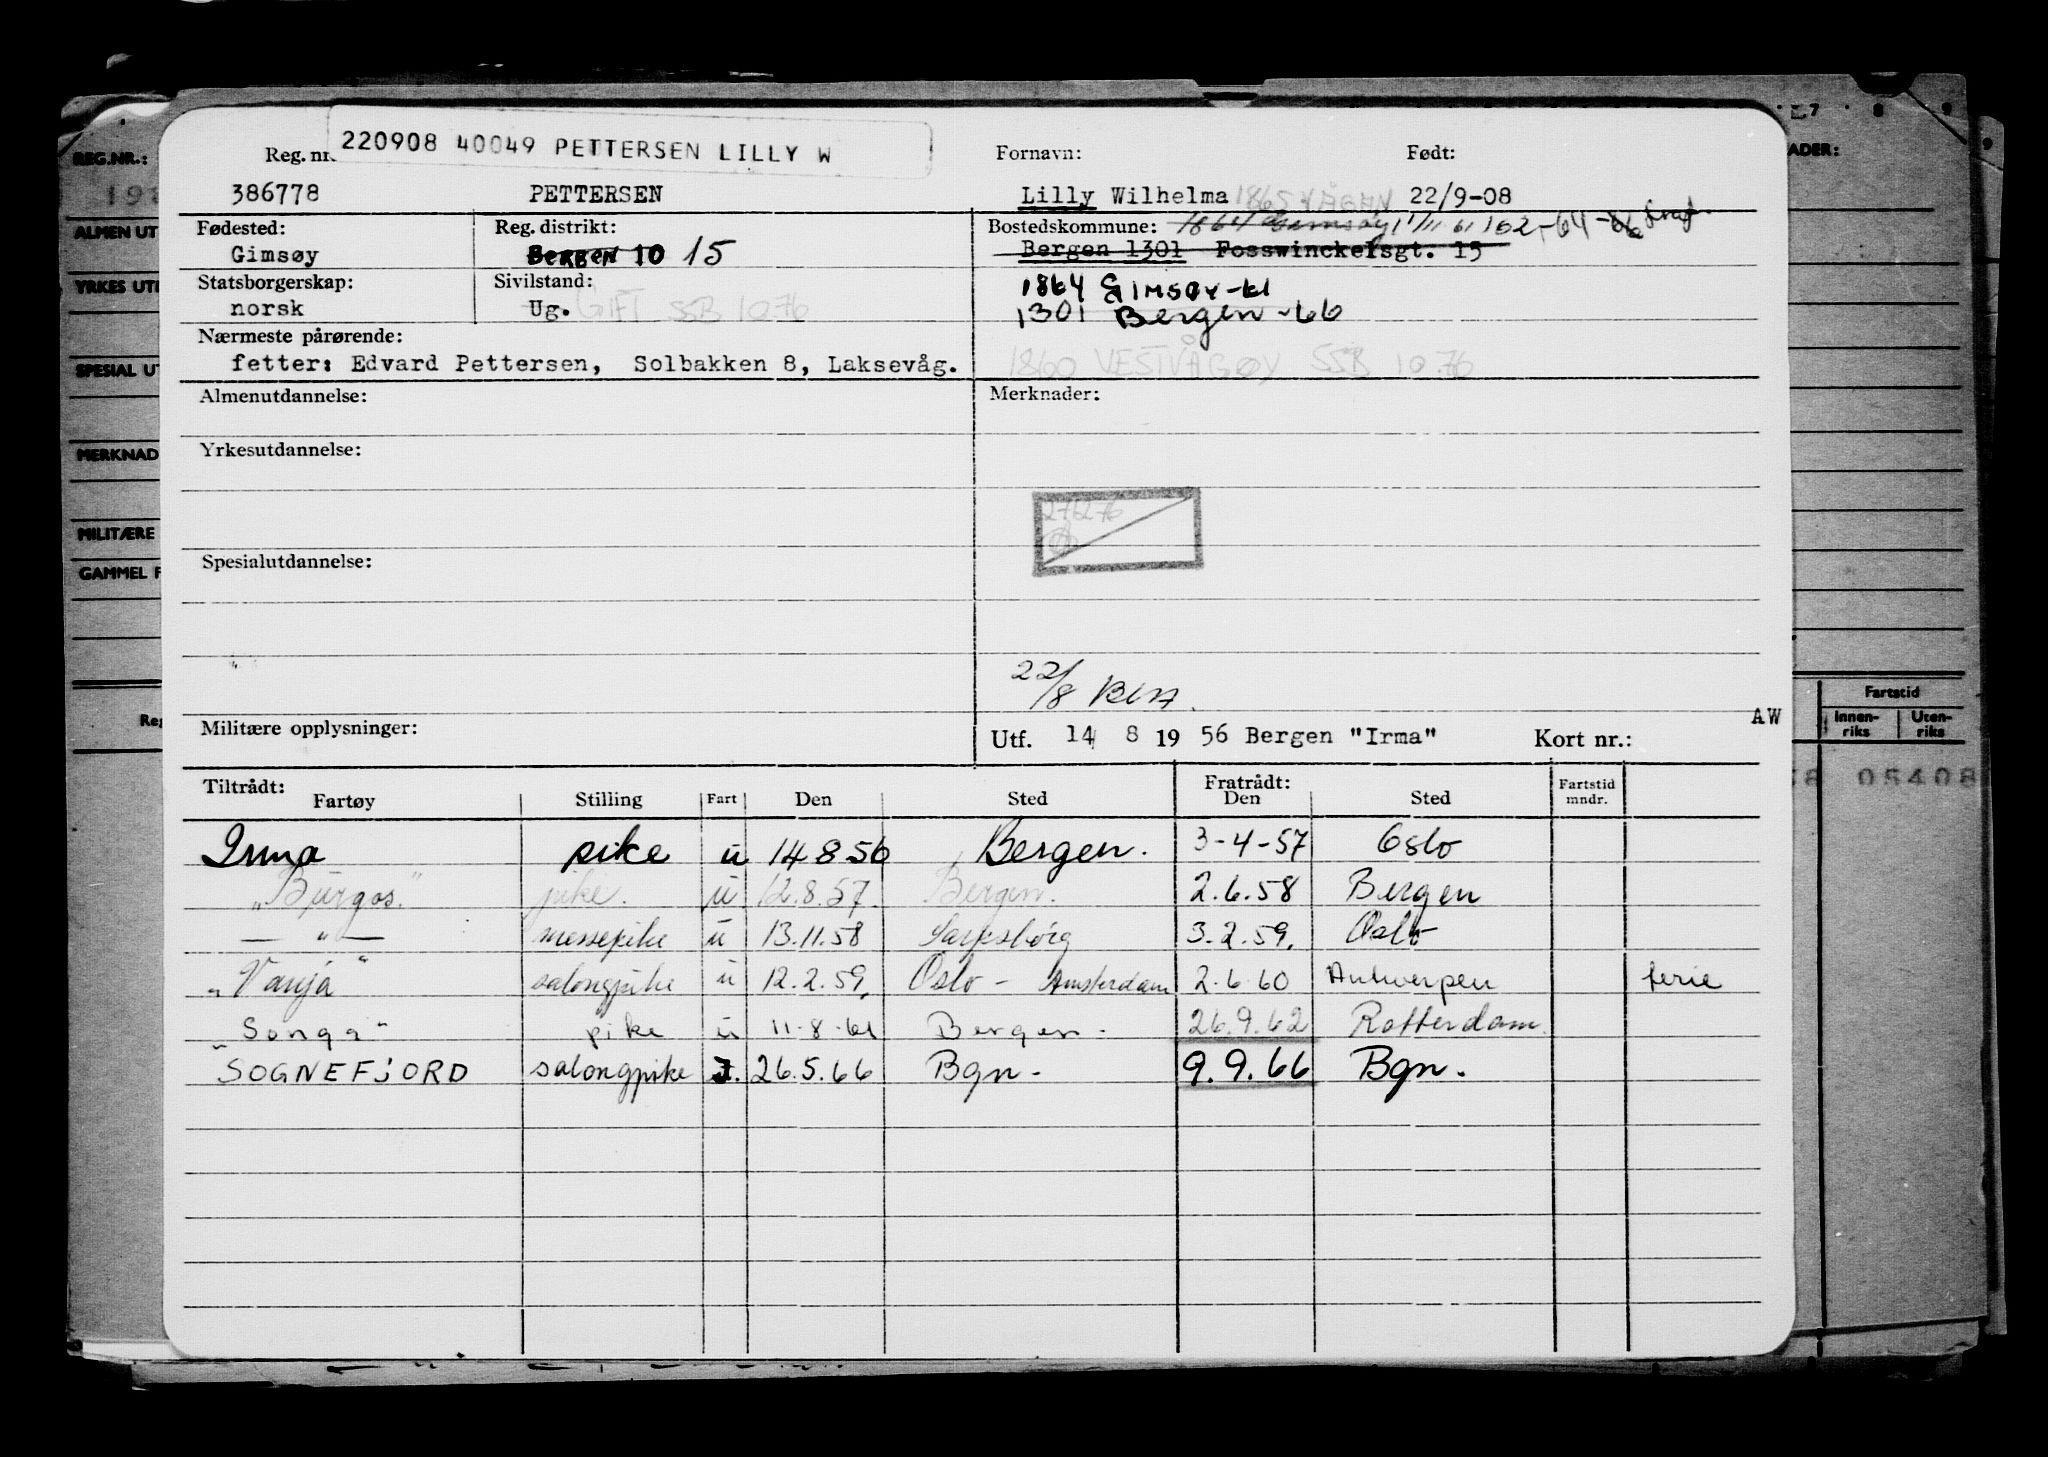 220908 40049 PETTERSEN LILLY W
Reg. nr. Fornavn: Født:
386778 PETTERSEN Lilly Wilhelma 1865 VÅGAN 22/9-08
Fødested: Reg. distrikt: Bostedskommune: 1864 Gimsøy 1/11 61 102-64-86
Gimsøy Bergen 10 15 Bergen 1301 Fosswinckelsgt. 15
Statsborgerskap: Sivilstand: 1864 GIMSØY-61
norsk Ug. GIFT SSB 10 76 1301 Bergen -66
Nærmeste pårørende:
fetter: Edvard Pettersen, Solbakken 8, Laksevåg. 1860 VESTVÅGØY SSB 10.76
Almenutdannelse: Merknader:
Yrkesutdannelse:
Spesialutdannelse:
22/8
Militære opplysninger: Utf. 14 8 19 56 Bergen "Irma" Kort nr.: AW
Tiltrådt: Fratrådt:
Fartøy Stilling Fart Den Sted Den Sted Fartstid mndr.
Irma pike u 14 8 56 Bergen. 3-4-57 Oslo
"Burgos." pike. u 12.8.57. Bergen. 2.6.58 Bergen
— " — messepike u 13.11.58 Sarpsborg 3.2.59. Oslo
"Vanja" salongpike u 12.2.59. Oslo - Amsterdam 2.6.60 Antwerpen ferie
"Songa" pike u 11-8-61 Bergen - 26.9.62 Rotterdam.
SOGNEFJORD salongpike J. 26.5.66 Bgn - 9.9.66 Bgn.
REG.NR.:
ALMEN UT
YRKES UT
SPESIAL UT
MERKNAD
MILITÆRE
GAMMEL F
Reg
7 8 9
ADER:
9
Fartstid
Innen-riks Uten-riks
05408